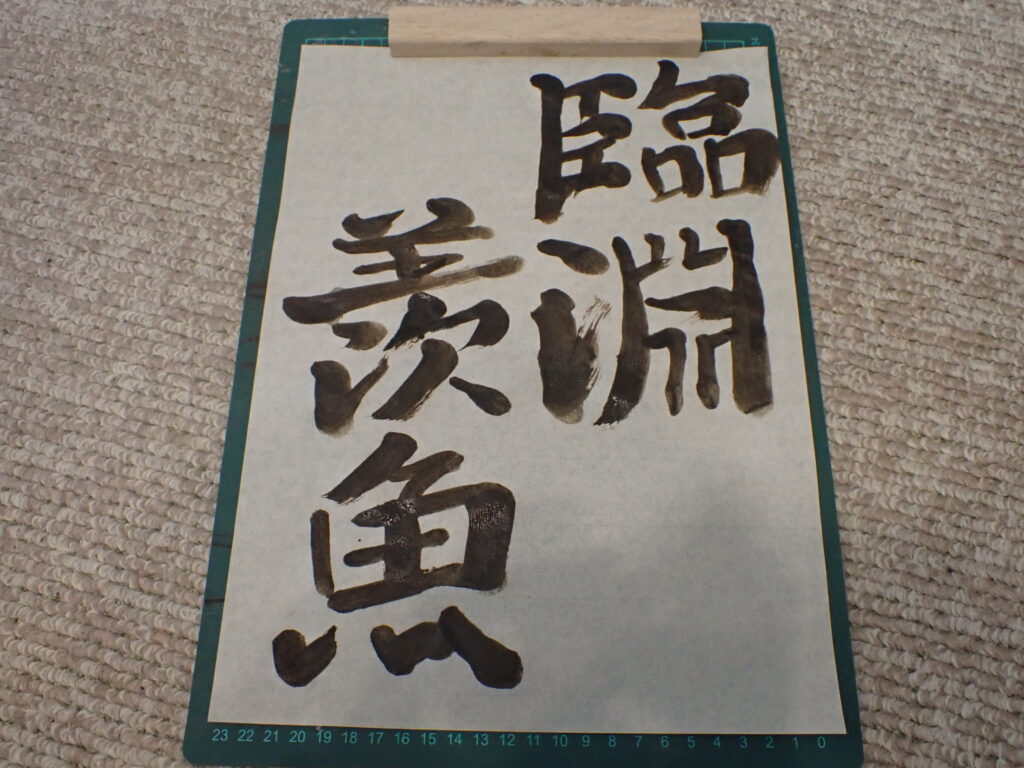 臨淵
羨魚
23 22 21 20 19 18 17 16 15 14 13 12 11 10 9 8 7 6 5 4 3 2 1 0